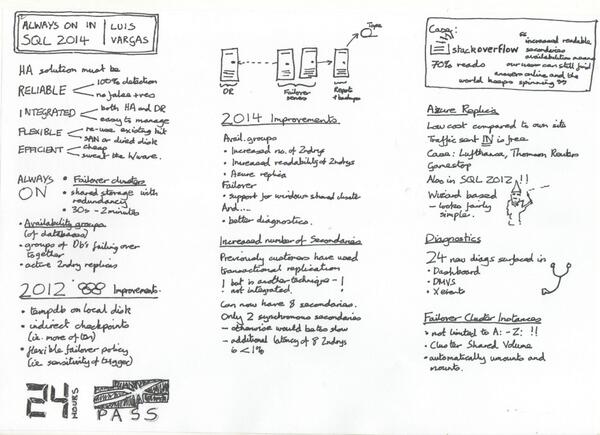 ALWAYS ON IN
SQL 2014
LUIS
VARGAS
HA solution must be
RELIABLE
100% detection
no false +ves
INTEGRATED
both HA and DR
easy to manage
FLEXIBLE
re-use existing kit
SAN or direct disk
EFFICIENT
cheap
sweat the h/ware.
ALWAYS
ON
• Failover clusters
• shared storage with
redundancy
• 30s - 2 minutes
• Availability groups
(of databases)
• groups of Db's failing over
together
• active 2ndry replicas
2012 Improvements.
• tempdb on local disk
• indirect checkpoints
(i.e. more often)
• flexible failover policy
(i.e. sensitivity of trigger)
24 HOURS
PASS
Tape
DR
Failover
servers
Reports
+ backups
2014 Improvements
Avail. groups
• Increased no. of 2ndrys
• Increased readability of 2ndrys
• Azure replica
Failover
• support for windows shared cluster
And....
• better diagnostics.
Increased number of Secondaries
Previously customers have used
transactional replication
! but is another technique - !
not integrated.
Can now have 8 secondaries.
Only 2 synchronous secondaries
- otherwise would be too slow
- additional latency of 8 2ndrys
is < 1%
Case:
stackoverflow
70% reads
"increased readable
secondaries
availability means
our users can still find
answers online and the
world keeps spinning"
Azure Replicas
Low cost compared to own site
Traffic sent IN is free
Case: Lufthansa, Thomson Reuters
Gamestop
Also in SQL 2012!!
Wizard based
- looks fairly
simple.
Diagnostics
24 new diags surfaced in
• Dashboard
• DMVs
• Xevents
Failover Cluster Instances
• not limited to A: - Z: !!
• Cluster Shared Volume
• automatically umounts and
mounts.